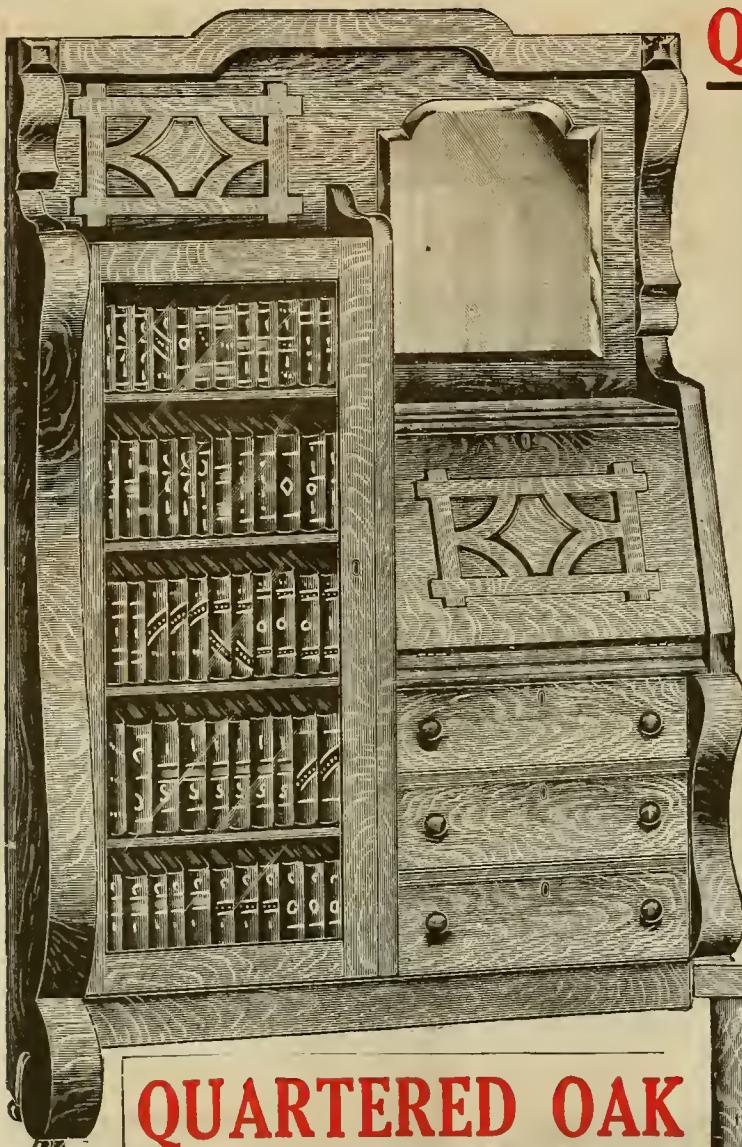 Q
QUARTERED OAK